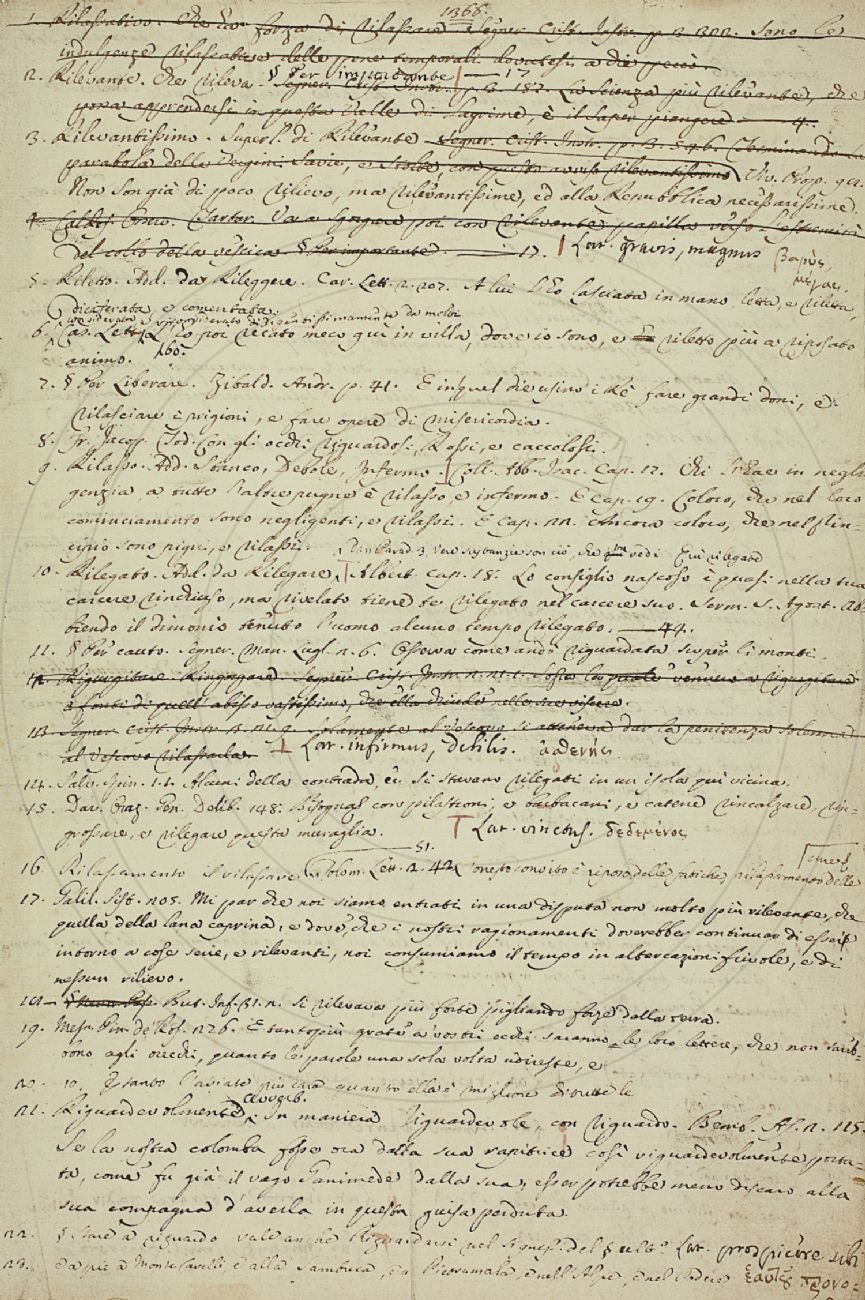 1366.
1. Rilassativo. Che ha forza di rilassare. Segner. Crist. Instr. p. 3. 302. Sono le
indulgenze rilassative delle pene temporali dovutesi a die pecc.
2. Rilevante. Che rileva. § Per importante — 17
Segner. Crist. Instr. p. 3. 187. La scienza più rilevante, che
possa apprendersi in questa Valle di Lagrime, è il saper piangere — 4.
3. Rilevantissimo. Superl. di Rilevante Segner. Crist. Instr. p. 3. 546. Terminando la
parabola delle Vergini Savie, e Stolte, con questo avviso rilevantissimo Viv. Prop. 92.
Non son già di poco rilievo, ma rilevantissime, ed alla Repubblica necessarissime.
4. Vassi a sgorgare poi con rilevante papilla verso l'estremità
del collo della vescica. § Per importante — 17. Lat. gravis, magnus βαρύς,
μέγας.
5. Riletto. Add. da Rileggere. Car. Lett. 2. 207. A lui l'ho lasciata in mano letta, e riletta,
diciferata, e comentata.
considerata e da molti
6. Cas. Lett. 60. L'ho poi recato meco quì in villa, dove io sono, e riletto più a riposato
animo.
7. § Per Liberare. Zibald. Andr. p. 41. E in quel die usino i Rè fare grandi doni, e
rilasciare i prigioni, e fare opere di misericordia.
8. Fr. Jacop. Tod. Con gli occhi riguardosi, Rossi, e caccolosi.
9. Rilasso. Add. Stanco, Debole, Infermo. Coll. Abb. Isac. Cap. 17. Chi in negli-
genzia, a tutte l'altre pugne è rilasso, e infermo. E cap. 19. Coloro, che nel loro
cominciamento sono negligenti, e rilassi. E Cap. 22. Ancora coloro, che nel prin-
cipio sono pigri, e rilassi. Dan. Parad. 3. Vere sustanzie son ciò, che tu vedi Quì rilegate
10. Rilegato. Add. da Rilegare. Albert. Cap. 18. Lo consiglio nascoso è quasi nella tua
carcere rinchiuso, ma rivelato tiene te rilegato nel carcere suo. Serm. S. Agost. Ab-
biendo il dimonio tenuto l'uomo alcuno tempo rilegato. — 44.
11. § Per cauto. Segner. Man. Lugl. n. 6. Osserva come andò riguardata super li monti.
12. Rigurgitare. Ringorgare. Segner. Crist. Instr. venuero a rigurgitare
i fonti di quell' abisso vastissimo, che ella chiude nelle sue viscere.
13. Segner. Crist. Instr. Solamente al Vescovo si atteneva dar la penitenza solenne,
al Vescovo rilassarla. Lat. infirmus, debilis. ἀσθενής
14. Salv. Spin. 1. 1. Alcuni della contrada, ec. si stevano rilegati in un isola quì vicina.
15. Dav. Oraz. Gen. Delib. 148. Bisogna con pilastroni, e barbacani, e catene rincalzare, rin-
grossare, e rilegare questa muraglia. Lat. vinctus. δεδεμένος
— 51.
16. Rilassamento il rilassare. Tolom. Lett. 2. 42. onesto convito è riposo delle fatiche, rilassamento delle
17. Galil. Sist. 205. Mi par che noi siamo entrati in una disputa non molto più rilevante, che
quella della lana caprina, e dove, che i nostri ragionamenti doverebber continuar di essere
intorno a cose serie, e rilevanti, noi consumiamo il tempo in altercazioni frivole, e di
nessun rilievo.
18. But. Inf. 31. 2. Si rilevava più forte pigliando forze dalla terra.
19. Mesr. Pin. de Ros. 276. E tanto più grate a' vostri occhi saranno le loro lettere, che non sareb-
bono agli orecchi, quanto le parole una sola volta udireste, e
20. 10. 
21. Riguardevolmente. Avverb. In maniera riguardevole, con riguardo. Bemb. As. 2. 115.
Se la nostra colomba fosse ora dalla sua rapitrice così riguardevolmente porta-
ta, come fu già il vago Ganimede dalla sua, esser potrebbe meno discaro alla
sua compagna d'averla in questa guisa perduta.
22. § Stare a riguardo vale anche Riguardarsi nel signif. del § ult.o Lat. prospicere sibi
23. Da piè a Montecavelli, e alla Sambuca, e nell' Alpe, e nel Podere ἑαυτοῦ προνο-